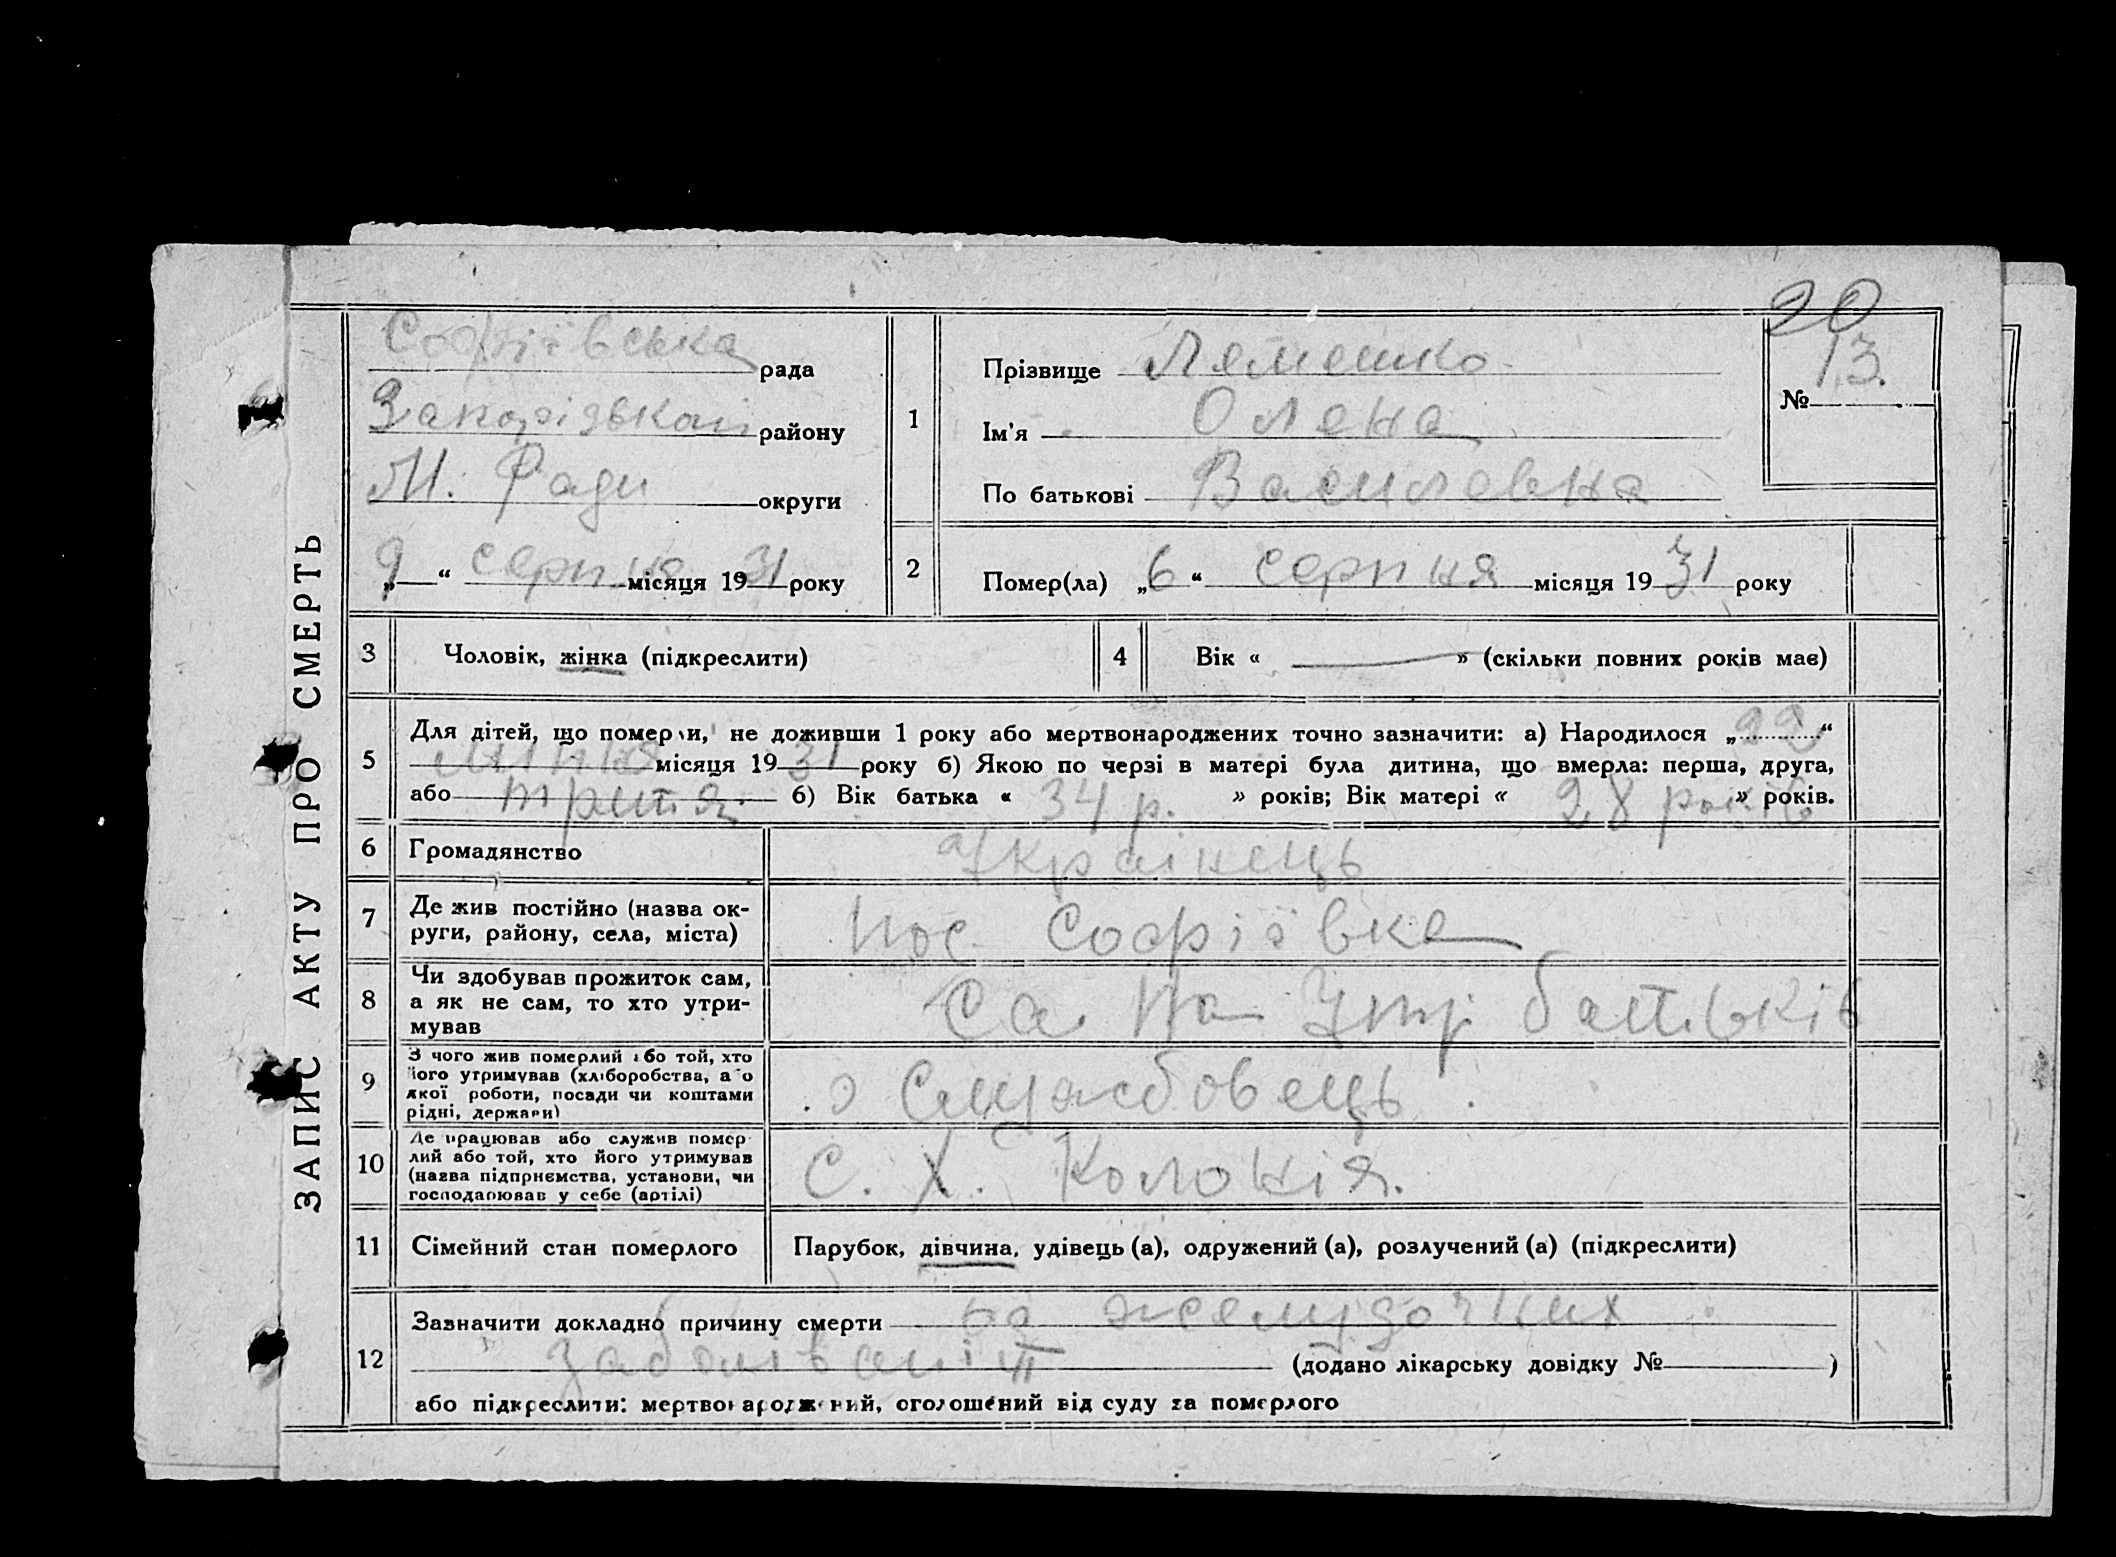 ЗАПИС АКТУ ПРО СМЕРТЬ
20
Софіївська рада
Запорізької району
М. Ради округи
„9“ серпня місяця 1931 року
1
Прізвище Лемешко
Ім'я Олена
По батькові Василевна
№ 13.
2
Помер(ла) „6“ серпня місяця 1931 року
3 Чоловік, жінка (підкреслити)
4 Вік « — » (скільки повних років має)
5 Для дітей, що померли, не доживши 1 року або мертвонароджених точно зазначити: а) Народилося „22“
липня місяця 1931 року б) Якою по черзі в матері була дитина, що вмерла: перша, друга,
або третя б) Вік батька « 34 р. » років; Вік матері « 28 років » років.
6 Громадянство Українець
7 Де жив постійно (назва ок-
руги, району, села, міста) пос. Софіївка
8 Чи здобував прожиток сам,
а як не сам, то хто утри-
мував на утр батьків
9 З чого жив померлий або той, хто
його утримував (хліборобства, або
якої роботи, посади чи коштами
рідні, держави) Службовець
10 Де працював або служив помер
лий або той, хто його утримував
(назва підприємства, установи, чи
господарював у себе (артілі) С. Х. Колонія.
11 Сімейний стан померлого Парубок, дівчина, удівець (а), одружений (а), розлучений (а) (підкреслити)
12 Зазначити докладно причину смерти желудочних
заболівані (додано лікарську довідку № )
або підкреслити: мертвонароджений, оголошений від суду за померлого